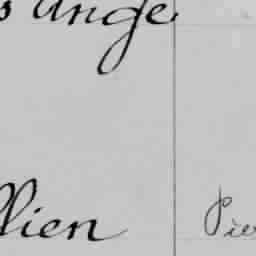 s Ange
llien
Pier